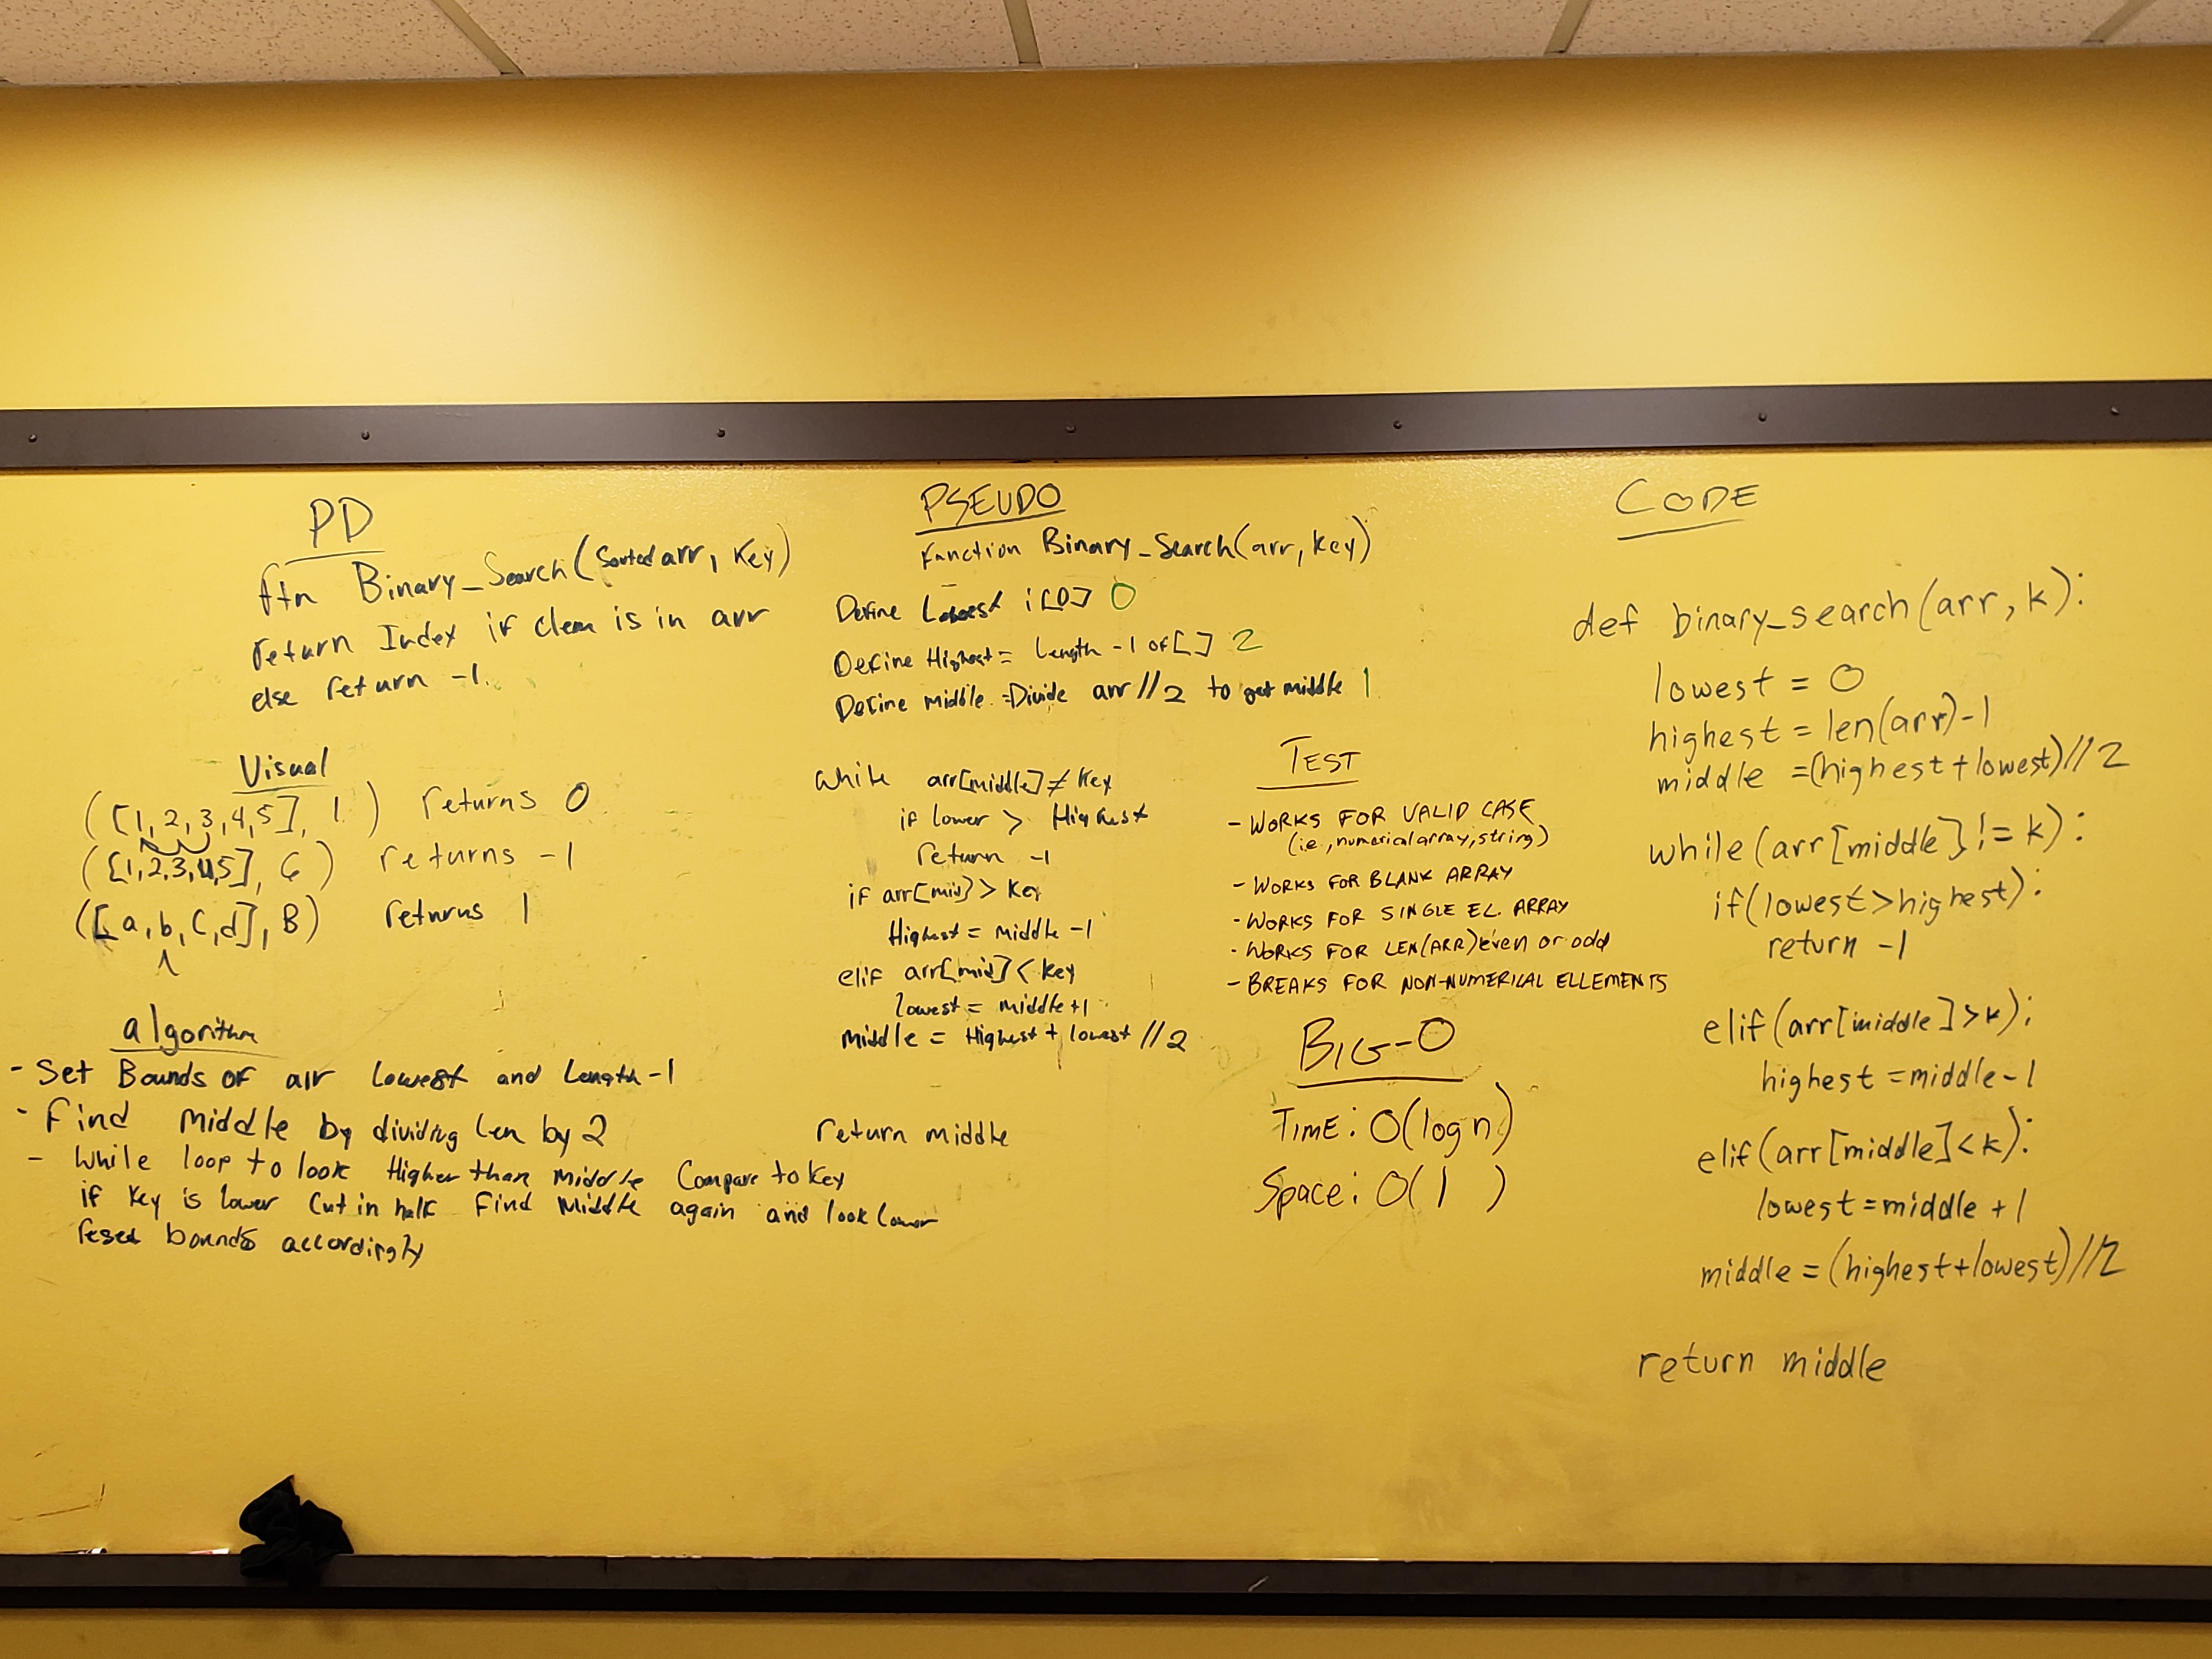 PD
ftn Binary_Search(Sorted arr, Key)
return Index if elem is in arr
else return -1.
Visual
([1, 2, 3, 4, 5], 1 ) returns 0
([1, 2, 3, 4, 5], 6 ) returns -1
([a, b, c, d], B) returns 1
algorithm
- Set Bounds of arr lowest and Length -1
- Find middle by dividing len by 2
- While loop to look Higher than middle Compare to key
if key is lower cut in half find middle again and look lower
reset bounds accordingly
PSEUDO
Function Binary_Search(arr, key)
Define Lowest i[0] 0
Define Highest = Length -1 of [ ] 2
Define middle = Divide arr // 2 to get middle 1
While arr[middle] ≠ Key
if lower > Highest
return -1
if arr[mid] > Key
Highest = middle -1
elif arr[mid] < key
lowest = middle +1
middle = Highest + lowest // 2
return middle
TEST
- WORKS FOR VALID CASE
(i.e., numerical array, string)
- WORKS FOR BLANK ARRAY
- WORKS FOR SINGLE EL. ARRAY
- WORKS FOR LEN(ARR) even or odd
- BREAKS FOR NON-NUMERICAL ELLEMENTS
BIG-O
TIME: O(log n)
Space: O( 1 )
CODE
def binary_search(arr, k):
lowest = 0
highest = len(arr)-1
middle = (highest + lowest) // 2
while (arr[middle] != k):
if(lowest > highest):
return -1
elif(arr[middle] > k):
highest = middle - 1
elif(arr[middle] < k):
lowest = middle + 1
middle = (highest + lowest) // 2
return middle